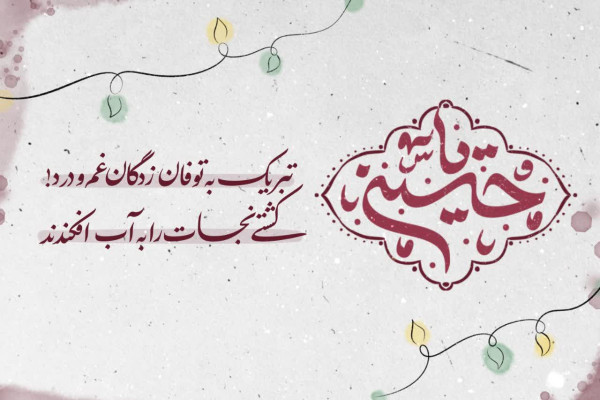 حسینی
تبریک به توفان زدگان غم و درد!
کشتی نجات را به آب افکندند